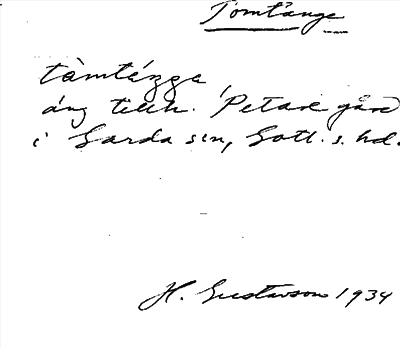 Tomtänge
tàmtéŋge
äng tillh. Petare gård
i Garda sn, Gotl. s. hd.
H. Gustavson 1934